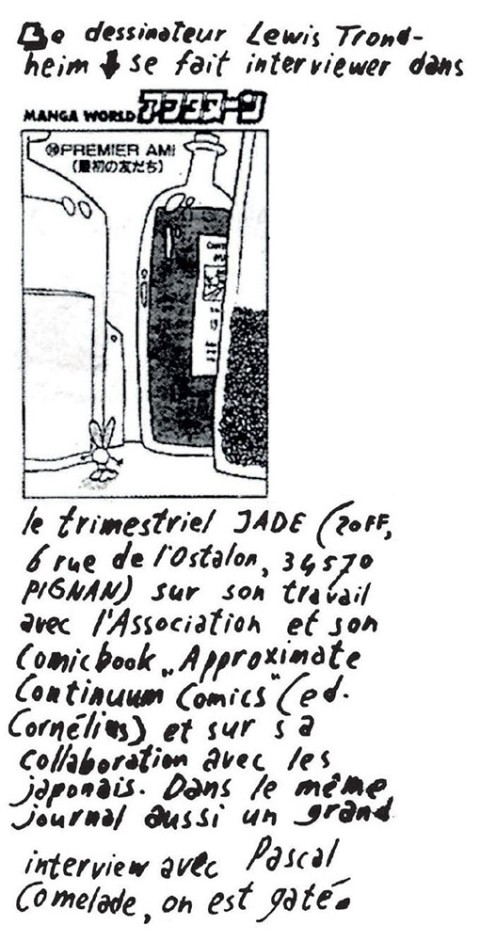 Le dessinateur Lewis Trond-
heim ↓ se fait interviewer dans
MANGA WORLD アフタヌーン
PREMIER AMI
(最初の友だち)
le trimestriel JADE (20FF,
6 rue de l'Ostalon, 34570
PIGNAN) sur son travail
avec l'Association et son
Comicbook „Approximate
Continuum Comics" (ed.
Cornélius) et sur sa
collaboration avec les
japonais. Dans le même
journal aussi un grand
interview avec Pascal
Comelade, on est gaté.